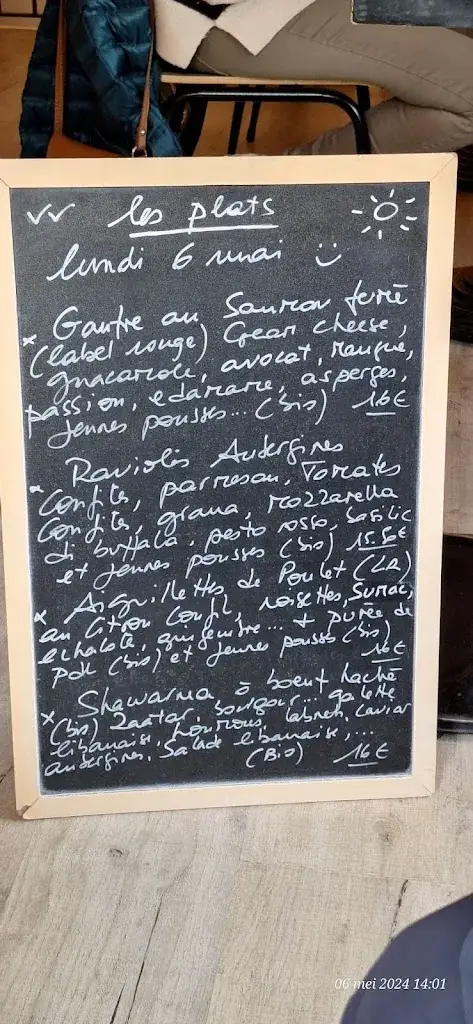 les plats
lundi 6 mai
x Gaufre au Saumon fumé
(label rouge) Cream cheese,
guacamole, avocat, mangue,
passion, edamame, asperges,
jeunes pousses... (bio) 16€
x Raviolis Aubergines
Confites, parmesan, Tomates
Confites, grana, mozzarella
di buffala, pesto rosso, basilic
et jeunes pousses (bio) 15.50€
x Aiguillettes de Poulet (LR)
au Citron Confit, noisettes, Sumac,
echalote, gingembre... + purée de
PDt (bio) et jeunes pousses (bio)
16€
x Shawarma ō boeuf haché
(bio) Zaatar, bourgour... galette
libanaise houmous, labneh, caviar
aubergines, Salade libanaise,...
(Bio) 16€
06 mei 2024 14:01